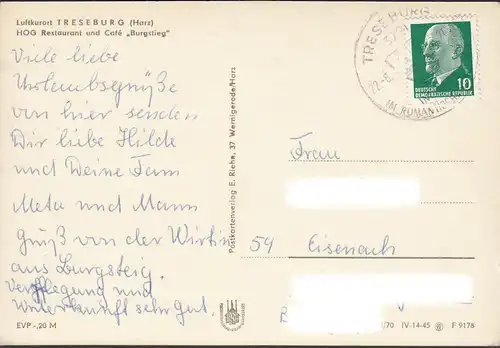 Luftkurort TRESEBURG (Harz)
HOG Restaurant und Café „Burgstieg"
Viele liebe
Urlaubsgrüße
von hier senden
Dir liebe Hilde
und Deine Fam
Meta und Mann
Gruß von der Wirtin
aus Burgsteig.
Verpflegung und
Unterkunft sehr gut.
EVP -,20 M
Postkartenverlag E. Riehn, 37 Wernigerode/Harz
TRESEBURG
22.-6.
IM ROMANTISCHEN
10
DEUTSCHE
DEMOKRATISCHE REPUBLIK
Frau
59 Eisenach
/70 IV-14-45 6 F 9178